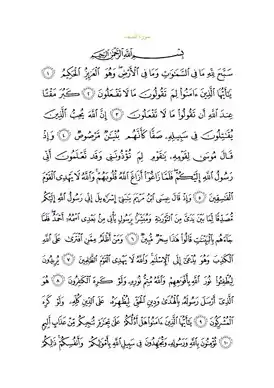 سورة الصف
بِسْمِ ٱللَّهِ ٱلرَّحْمَٰنِ ٱلرَّحِيمِ
سَبَّحَ لِلَّهِ مَا فِي ٱلسَّمَٰوَٰتِ وَمَا فِي ٱلْأَرْضِ وَهُوَ ٱلْعَزِيزُ ٱلْحَكِيمُ ١
يَٰٓأَيُّهَا ٱلَّذِينَ ءَامَنُوا۟ لِمَ تَقُولُونَ مَا لَا تَفْعَلُونَ ٢ كَبُرَ مَقْتًا
عِندَ ٱللَّهِ أَن تَقُولُوا۟ مَا لَا تَفْعَلُونَ ٣ إِنَّ ٱللَّهَ يُحِبُّ ٱلَّذِينَ
يُقَٰتِلُونَ فِي سَبِيلِهِۦ صَفًّا كَأَنَّهُم بُنْيَٰنٌ مَّرْصُوصٌ ٤ وَإِذْ
قَالَ مُوسَىٰ لِقَوْمِهِۦ يَٰقَوْمِ لِمَ تُؤْذُونَنِي وَقَد تَّعْلَمُونَ أَنِّي
رَسُولُ ٱللَّهِ إِلَيْكُمْ فَلَمَّا زَاغُوٓا۟ أَزَاغَ ٱللَّهُ قُلُوبَهُمْ وَٱللَّهُ لَا يَهْدِي ٱلْقَوْمَ
ٱلْفَٰسِقِينَ ٥ وَإِذْ قَالَ عِيسَى ٱبْنُ مَرْيَمَ يَٰبَنِيٓ إِسْرَٰٓءِيلَ إِنِّي رَسُولُ ٱللَّهِ إِلَيْكُم
مُّصَدِّقًا لِّمَا بَيْنَ يَدَيَّ مِنَ ٱلتَّوْرَىٰةِ وَمُبَشِّرًۢا بِرَسُولٍ يَأْتِي مِنۢ بَعْدِي ٱسْمُهُۥٓ أَحْمَدُ فَلَمَّا
جَآءَهُم بِٱلْبَيِّنَٰتِ قَالُوا۟ هَٰذَا سِحْرٌ مُّبِينٌ ٦ وَمَنْ أَظْلَمُ مِمَّنِ ٱفْتَرَىٰ عَلَى ٱللَّهِ
ٱلْكَذِبَ وَهُوَ يُدْعَىٰٓ إِلَى ٱلْإِسْلَٰمِ وَٱللَّهُ لَا يَهْدِي ٱلْقَوْمَ ٱلظَّٰلِمِينَ ٧ يُرِيدُونَ
لِيُطْفِـُٔوا۟ نُورَ ٱللَّهِ بِأَفْوَٰهِهِمْ وَٱللَّهُ مُتِمُّ نُورِهِۦ وَلَوْ كَرِهَ ٱلْكَٰفِرُونَ ٨ هُوَ
ٱلَّذِيٓ أَرْسَلَ رَسُولَهُۥ بِٱلْهُدَىٰ وَدِينِ ٱلْحَقِّ لِيُظْهِرَهُۥ عَلَى ٱلدِّينِ كُلِّهِۦ وَلَوْ كَرِهَ
ٱلْمُشْرِكُونَ ٩ يَٰٓأَيُّهَا ٱلَّذِينَ ءَامَنُوا۟ هَلْ أَدُلُّكُمْ عَلَىٰ تِجَٰرَةٍ تُنجِيكُم مِّنْ عَذَابٍ أَلِيمٍ
١٠ تُؤْمِنُونَ بِٱللَّهِ وَرَسُولِهِۦ وَتُجَٰهِدُونَ فِي سَبِيلِ ٱللَّهِ بِأَمْوَٰلِكُمْ وَأَنفُسِكُمْ ذَٰلِكُمْ